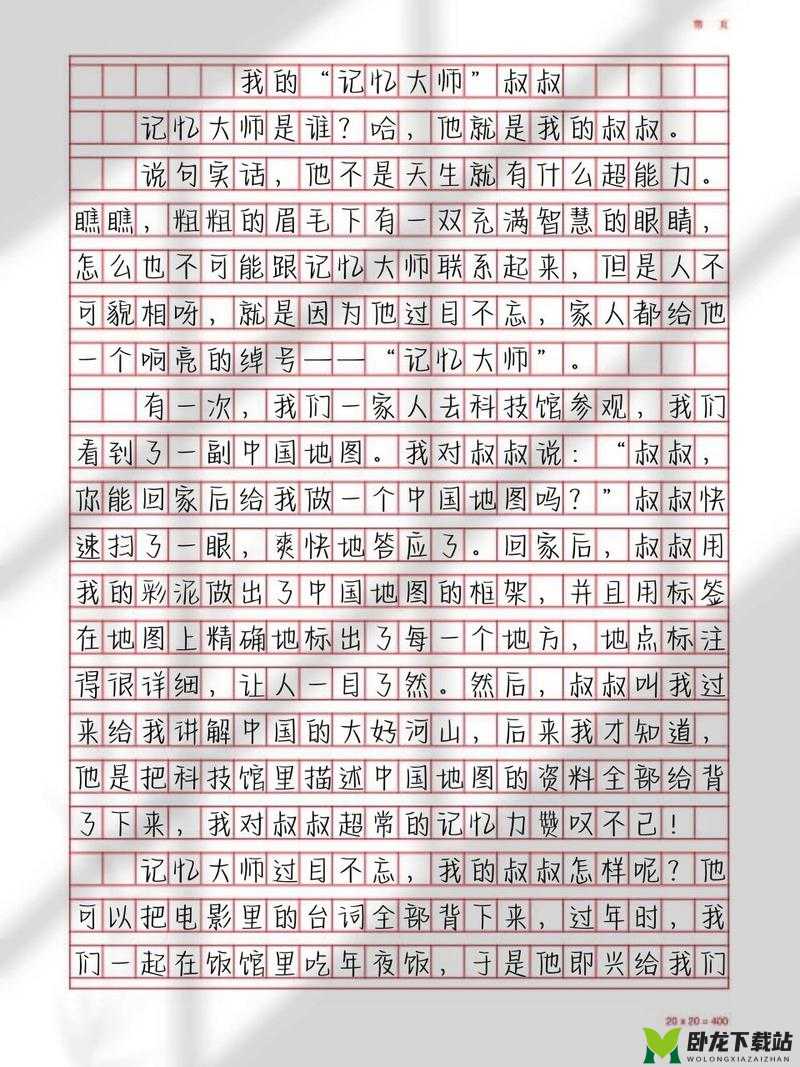 第 页
我的“记忆大师”叔叔
记忆大师是谁？哈，他就是我的叔叔。
说句实话，他不是天生就有什么超能力。
瞧瞧，粗粗的眉毛下有一双充满智慧的眼睛，
怎么也不可能跟记忆大师联系起来，但是人不
可貌相呀，就是因为他过目不忘，家人都给他
一个响亮的绰号——“记忆大师”。
有一次，我们一家人去科技馆参观，我们
看到了一副中国地图。我对叔叔说：“叔叔，
你能回家后给我做一个中国地图吗？”叔叔快
速扫了一眼，爽快地答应了。回家后，叔叔用
我的彩泥做出了中国地图的框架，并且用标签
在地图上精确地标出了每一个地方，地点标注
得很详细，让人一目了然。然后，叔叔叫我过
来给我讲解中国的大好河山，后来我才知道，
他是把科技馆里描述中国地图的资料全部给背
了下来，我对叔叔超常的记忆力赞叹不已！
记忆大师过目不忘，我的叔叔怎样呢？他
可以把电影里的台词全部背下来，过年时，我
们一起在饭馆里吃年夜饭，于是他即兴给我们
20×20=400
卧龙下载站
WOLONGXIAZAIZHAN